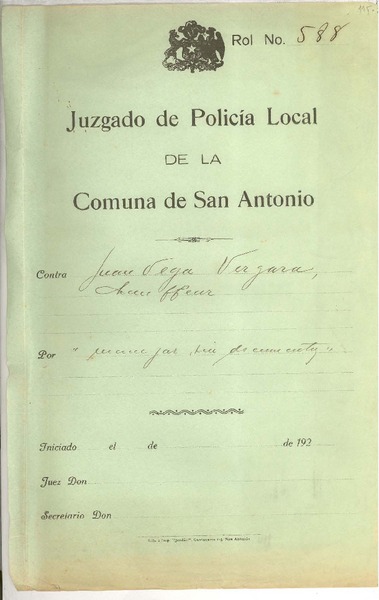 115.-
Rol No. 588
Juzgado de Policía Local
DE LA
Comuna de San Antonio
Contra Juan Vega Vergara,
chauffeur
Por "manejar sin documentos".
Iniciado el de de 192
Juez Don
Secretario Don